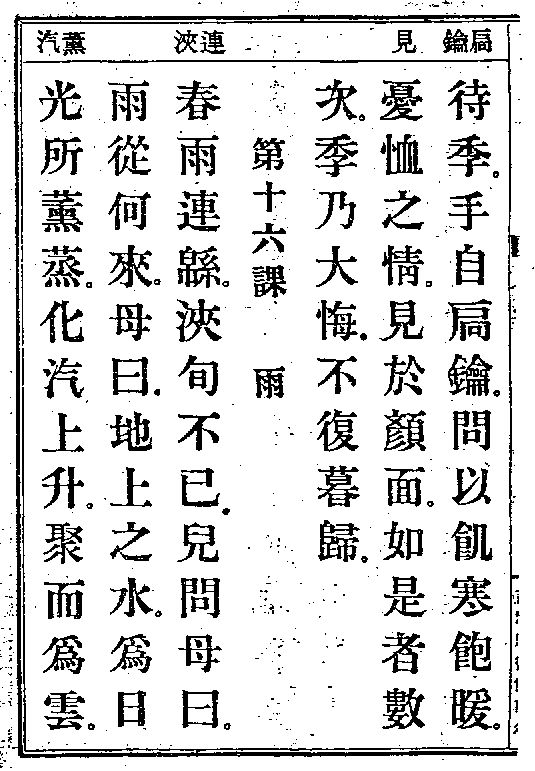 扃鑰
見
連浹
薰汽
待季。手自扃鑰。問以飢寒飽暖。
憂恤之情。見於顏面。如是者數
次。季乃大悔。不復暮歸。
第十六課 雨
春雨連緜。浹旬不已。兒問母曰。
雨從何來。母曰。地上之水。爲日
光所薰蒸。化汽上升。聚而爲雲。